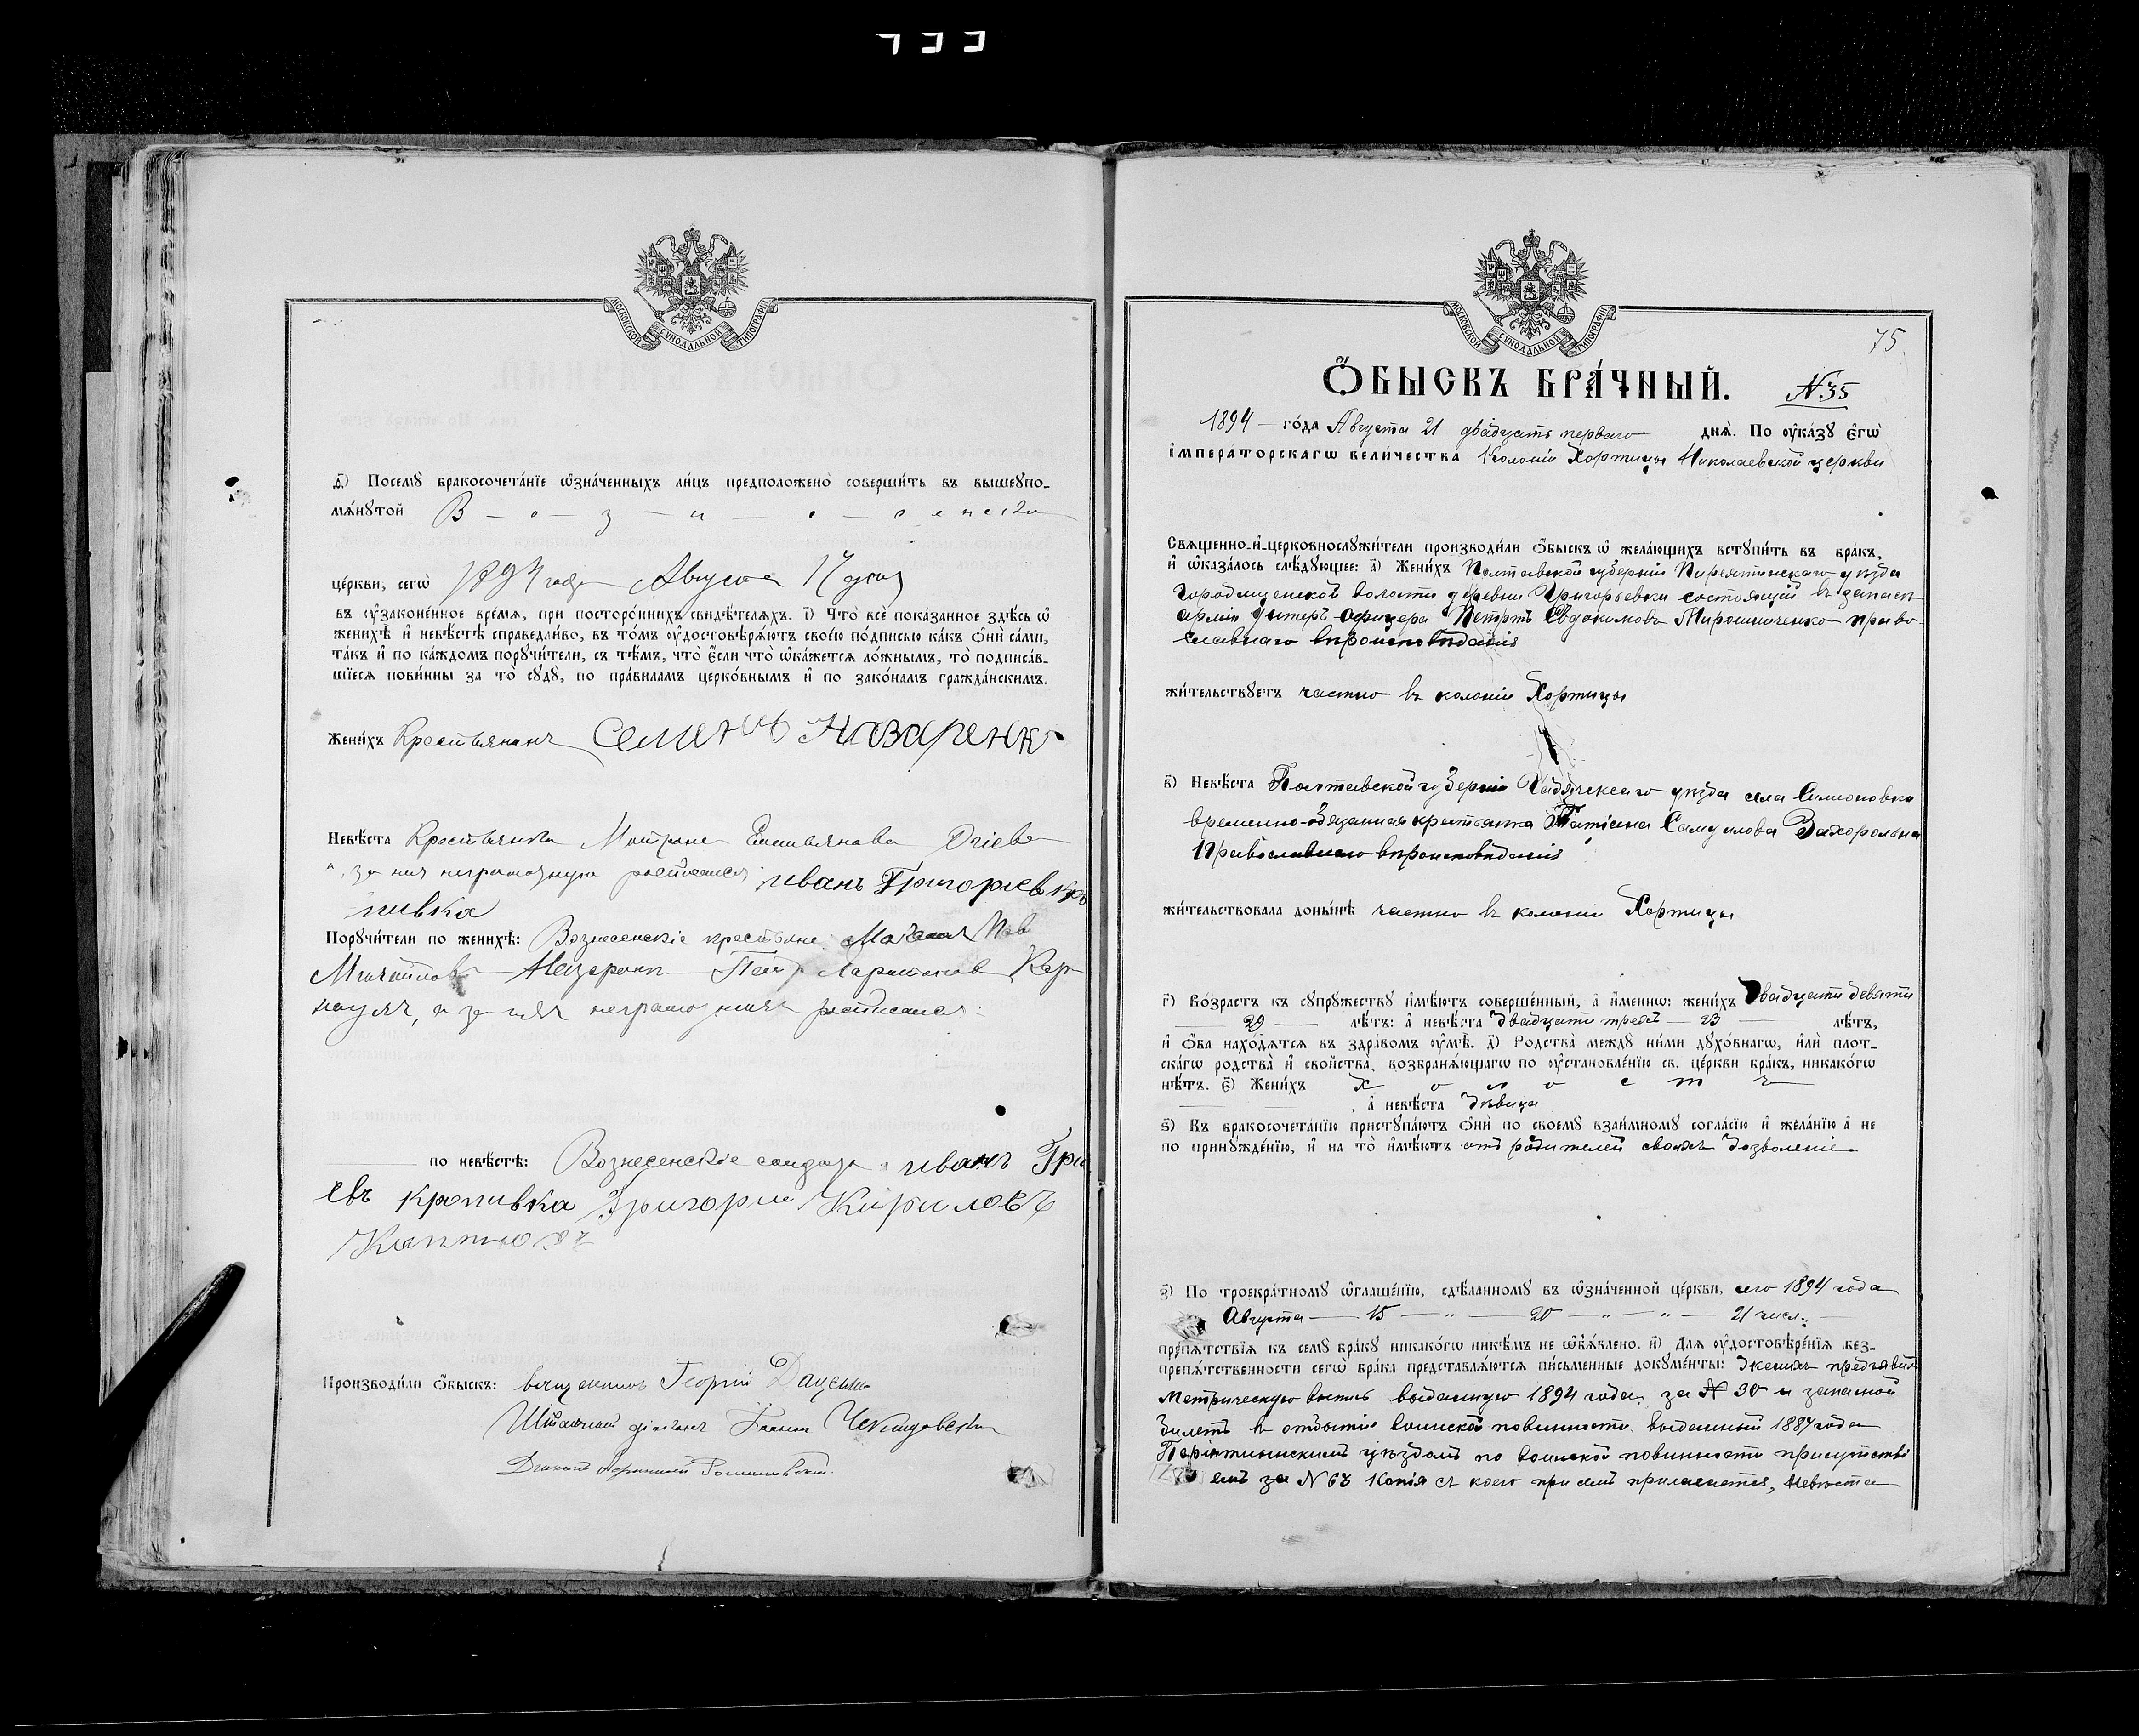 МОСКОВСКОЙ СѴНОДАЛЬНОЙ ТИПОГРАФІИ
ѳ҃) Посемꙋ̀ бракосочета́нїе ѡ҆зна́ченныхъ ли́цъ предположено̀ соверши́ть въ вышеꙋпо-
мѧ́нꙋтой В - о - з - н - е - с е н с к о
це́ркви, сегѡ̀ 1894 года Августа 17 дня
въ ᲂу҆зако́ненное вре́мѧ, при посторо́ннихъ свидѣ́телѧхъ. і҃) Что̀ всѐ пока́занное здѣ́сь ѡ҆
женихѣ̀ и҆ невѣ́стѣ справедли́во, въ то́мъ ᲂу҆достовѣрѧ́ютъ свое́ю по́дписью ка́къ ѻ҆нѝ са́ми,
та́къ и҆ по ка́ждомъ порꙋчи́тели, съ тѣ́мъ, что̀ є҆́сли что̀ ѡ҆ка́жетсѧ ло́жнымъ, то̀ подписа́в-
шїесѧ пови́нны за то̀ сꙋдꙋ̀, по пра́виламъ церко́внымъ и҆ по зако́намъ гражда́нскимъ.
Жени́хъ Крестьянинъ Семенъ Назаренко
Невѣ́ста Крестьянка Матрона Емельянова
за нея неграмотную росписался иванъ Григориевъ Кро
пивка
Порꙋчи́тели по женихѣ̀: Вознесенскіе крестьяне
Назаренко Петръ Кар
а за нихъ неграмотныхъ росписался
по невѣ́стѣ: Вознесенскіе иванъ Гри
евъ кропивка Григории Кириловъ
Произвѡди́ли ѻ҆́быскъ: Георгій Даценко
Штатный діаконъ
МОСКОВСКОЙ СѴНОДАЛЬНОЙ ТИПОГРАФІИ
75
Ѻ҆́БЫСКЪ БРА́ЧНЫЙ. N 35
1894 - го́да Августа 21 двадцать перваго днѧ̀. По ᲂу҆ка́зꙋ є҆гѡ̀
і҆мпера́торскагѡ вели́чества Колоніи Хортицы Николаевской церкви
Свѧще́нно-и҆-церковнослꙋжи́тели производи́ли ѻ҆́быскъ ѡ҆ жела́ющихъ встꙋпи́ть въ бра́къ,
и҆ ѡ҆каза́лось слѣ́дꙋющее: а҃) Жени́хъ Полтавской губерніи Пирятинскаго уѣзда
Городищенской волости деревни Григорьевки состоящій въ запасѣ
арміи унтеръ-офицера Петръ Евдокимовъ Мирошниченко право
славнаго вѣроисповѣданія
жи́тельствꙋетъ частно въ колоніи Хортицы
в҃) Невѣ́ста Полтавской губерніи Гадячскаго уѣзда села Симоновка
временно-обязанная крестьянка Татіана Самуилова Захорольна
Православнаго вѣроисповѣданія
жи́тельствовала доны́нѣ частно въ колоніи Хортицы
г҃) Во́зрастъ къ сꙋпрꙋ́жествꙋ и҆мѣ́ютъ соверше́нный, а҆ и҆́меннѡ: жени́хъ Двадцати девяти
29 лѣ́тъ: а҆ невѣ́ста двадцати трехъ - 23 лѣ́тъ,
и҆ ѻ҆́ба нахо́дѧтсѧ въ здра́вомъ ᲂу҆мѣ̀. д҃) Родства̀ междꙋ̀ ни́ми дꙋхо́внагѡ, и҆лѝ плот-
ска́гѡ родства̀ и҆ сво́йства, возбранѧ́ющагѡ по ᲂу҆становле́нїю св. це́ркви бра́къ, никако́гѡ
нѣ́тъ. є҃) Жени́хъ Х о л о с т ъ
, а҆ невѣ́ста дѣвица
ѕ҃) Въ бракосочета́нїю пристꙋпа́ютъ ѻ҆нѝ по своемꙋ̀ взаи́мномꙋ согла́сїю и҆ жела́нїю а҆ не
по принꙋжде́нїю, и҆ на то̀ и҆мѣ́ютъ отъ родителей своихъ дозволеніе.
з҃) По троекра́тномꙋ ѡ҆глаше́нїю, сдѣ́ланномꙋ въ ѡ҆зна́ченной це́ркви, сего 1894 года
Августа - 15 - " - 20 - " - " - 21 числ.
препѧ́тствїѧ къ семꙋ̀ бра́кꙋ никако́гѡ никѣ́мъ не ѡ҆б̾ѧ́влено. и҃) Длѧ ᲂу҆достовѣре́нїѧ без-
препѧ́тственности сегѡ̀ бра́ка представлѧ́ютсѧ пи́сьменные докꙋме́нты: Женихъ предъявилъ
метрическую выпись выданную 1894 года за N 30 и запасной
билетъ въ отбытіи воинской повинности выданный 1887 года
Пирятинскимъ уѣзднымъ по воинской повинности присутстві
емъ за N 63 Копія съ коего при семъ прилагается, Невѣста